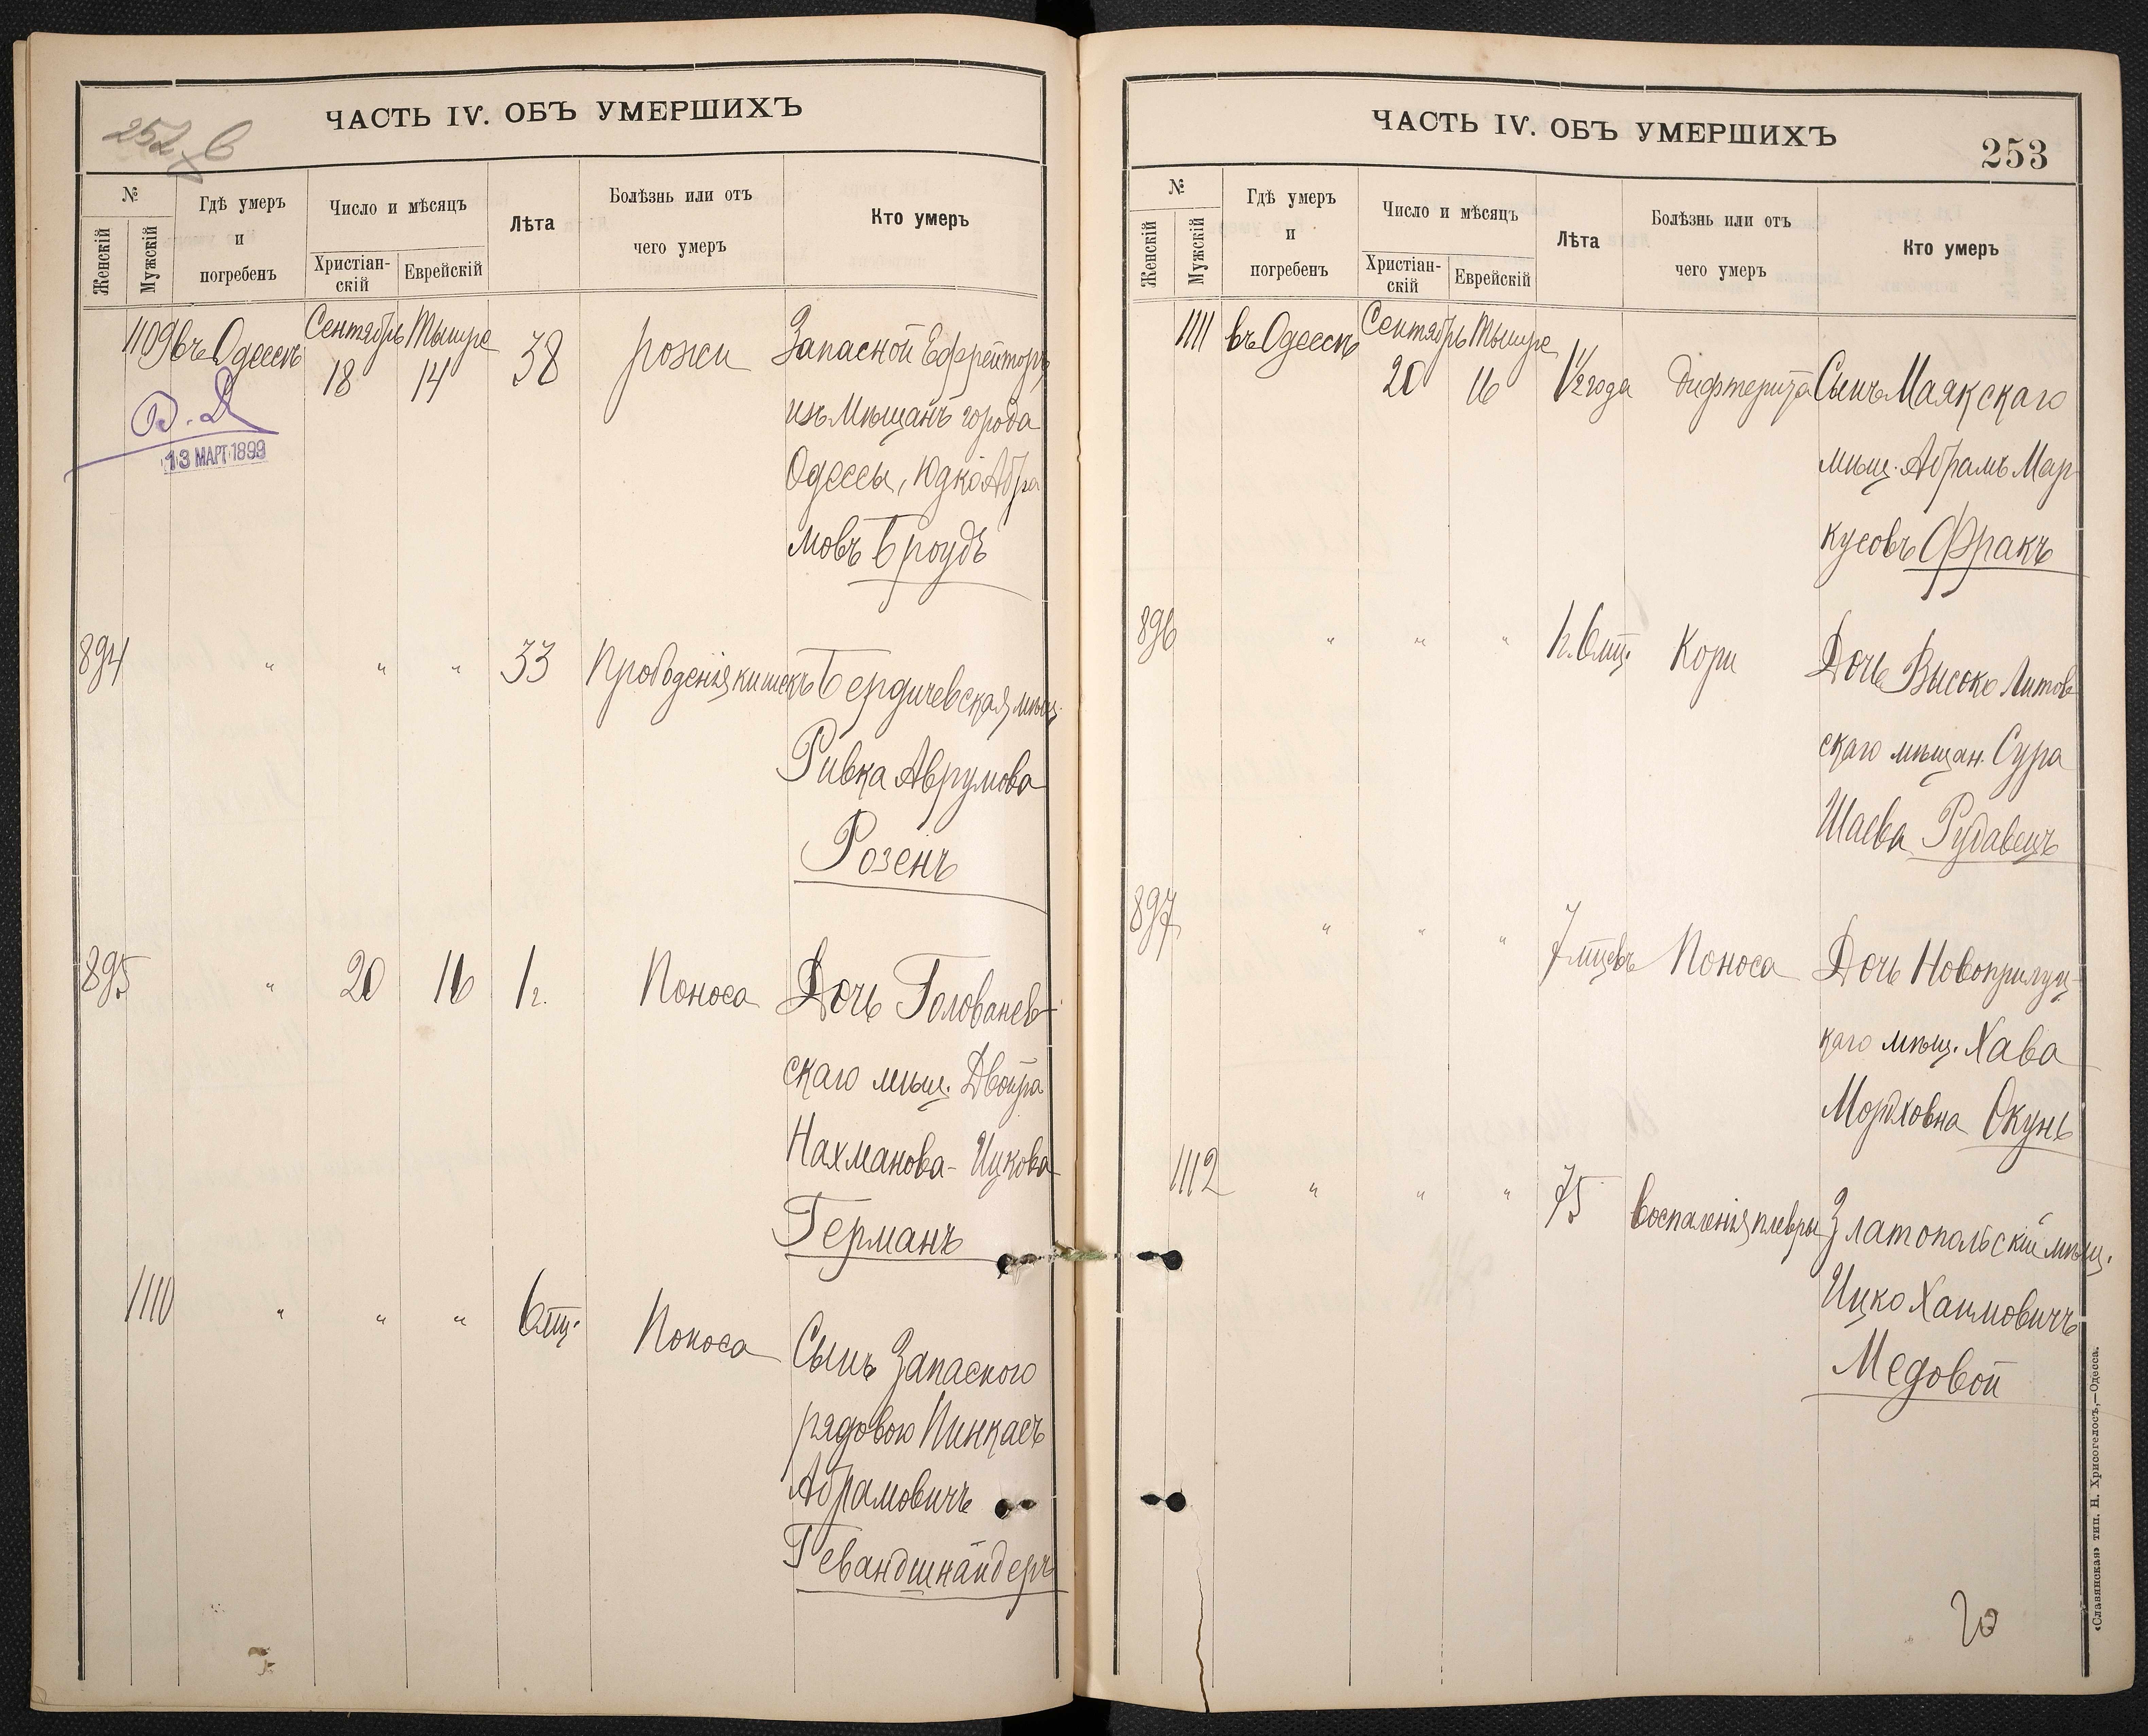 252 б
ЧАСТЬ IV. ОБЪ УМЕРШИХЪ
№
Женскій
Мужскій
Гдѣ умеръ
и
погребенъ
Число и мѣсяцъ
Христіан-
скій
Еврейскій
Лѣта
Болѣзнь или отъ
чего умеръ
Кто умеръ
1109 въ Одессѣ Сентябрь Тышре 38 рожи Запасной Ефрейторъ
18 14
изъ мѣщанъ города
Одессы, Юдко Абра
мовъ Броудъ
13 МАРТ 1899
894 " " " 33 Прободенія кишекъ Бердичевская мѣщ.
Ривка Аврумова
Розенъ
895 " 20 16 1 г. Поноса Дочь Голованев-
скаго мѣщ. Двойра
Нахманова-Ицкова
Германъ
1110 " " " 6 мц. Поноса Сынъ Запасного
рядового Пинкасъ
Абрамовичъ
Гевандшнайдеръ
ЧАСТЬ IV. ОБЪ УМЕРШИХЪ
253
№
Женскій
Мужскій
Гдѣ умеръ
и
погребенъ
Число и мѣсяцъ
Христіан-
скій
Еврейскій
Лѣта
Болѣзнь или отъ
чего умеръ
Кто умеръ
1111 въ Одессѣ Сентябрь Тышре
20 16 1/2 года дифтерита Сынъ Маякскаго
мѣщ. Абрамъ Мар
кусовъ Фракъ
896 " " " 1 г. 6 мц. Кори Дочь Высоко Литов
скаго мѣщан. Сура
Шаева Рудавецъ
897 " " " 7 мцевъ Поноса Дочь Новоприлуц-
каго мѣщ. Хава
Мордховна Окунь
1112 " " " 75 воспаленія плевры Златопольскій мѣщ.
Ицко Хаимовичъ
Медовой
«Славянская» тип. Н. Хрисогелосъ,—Одесса.